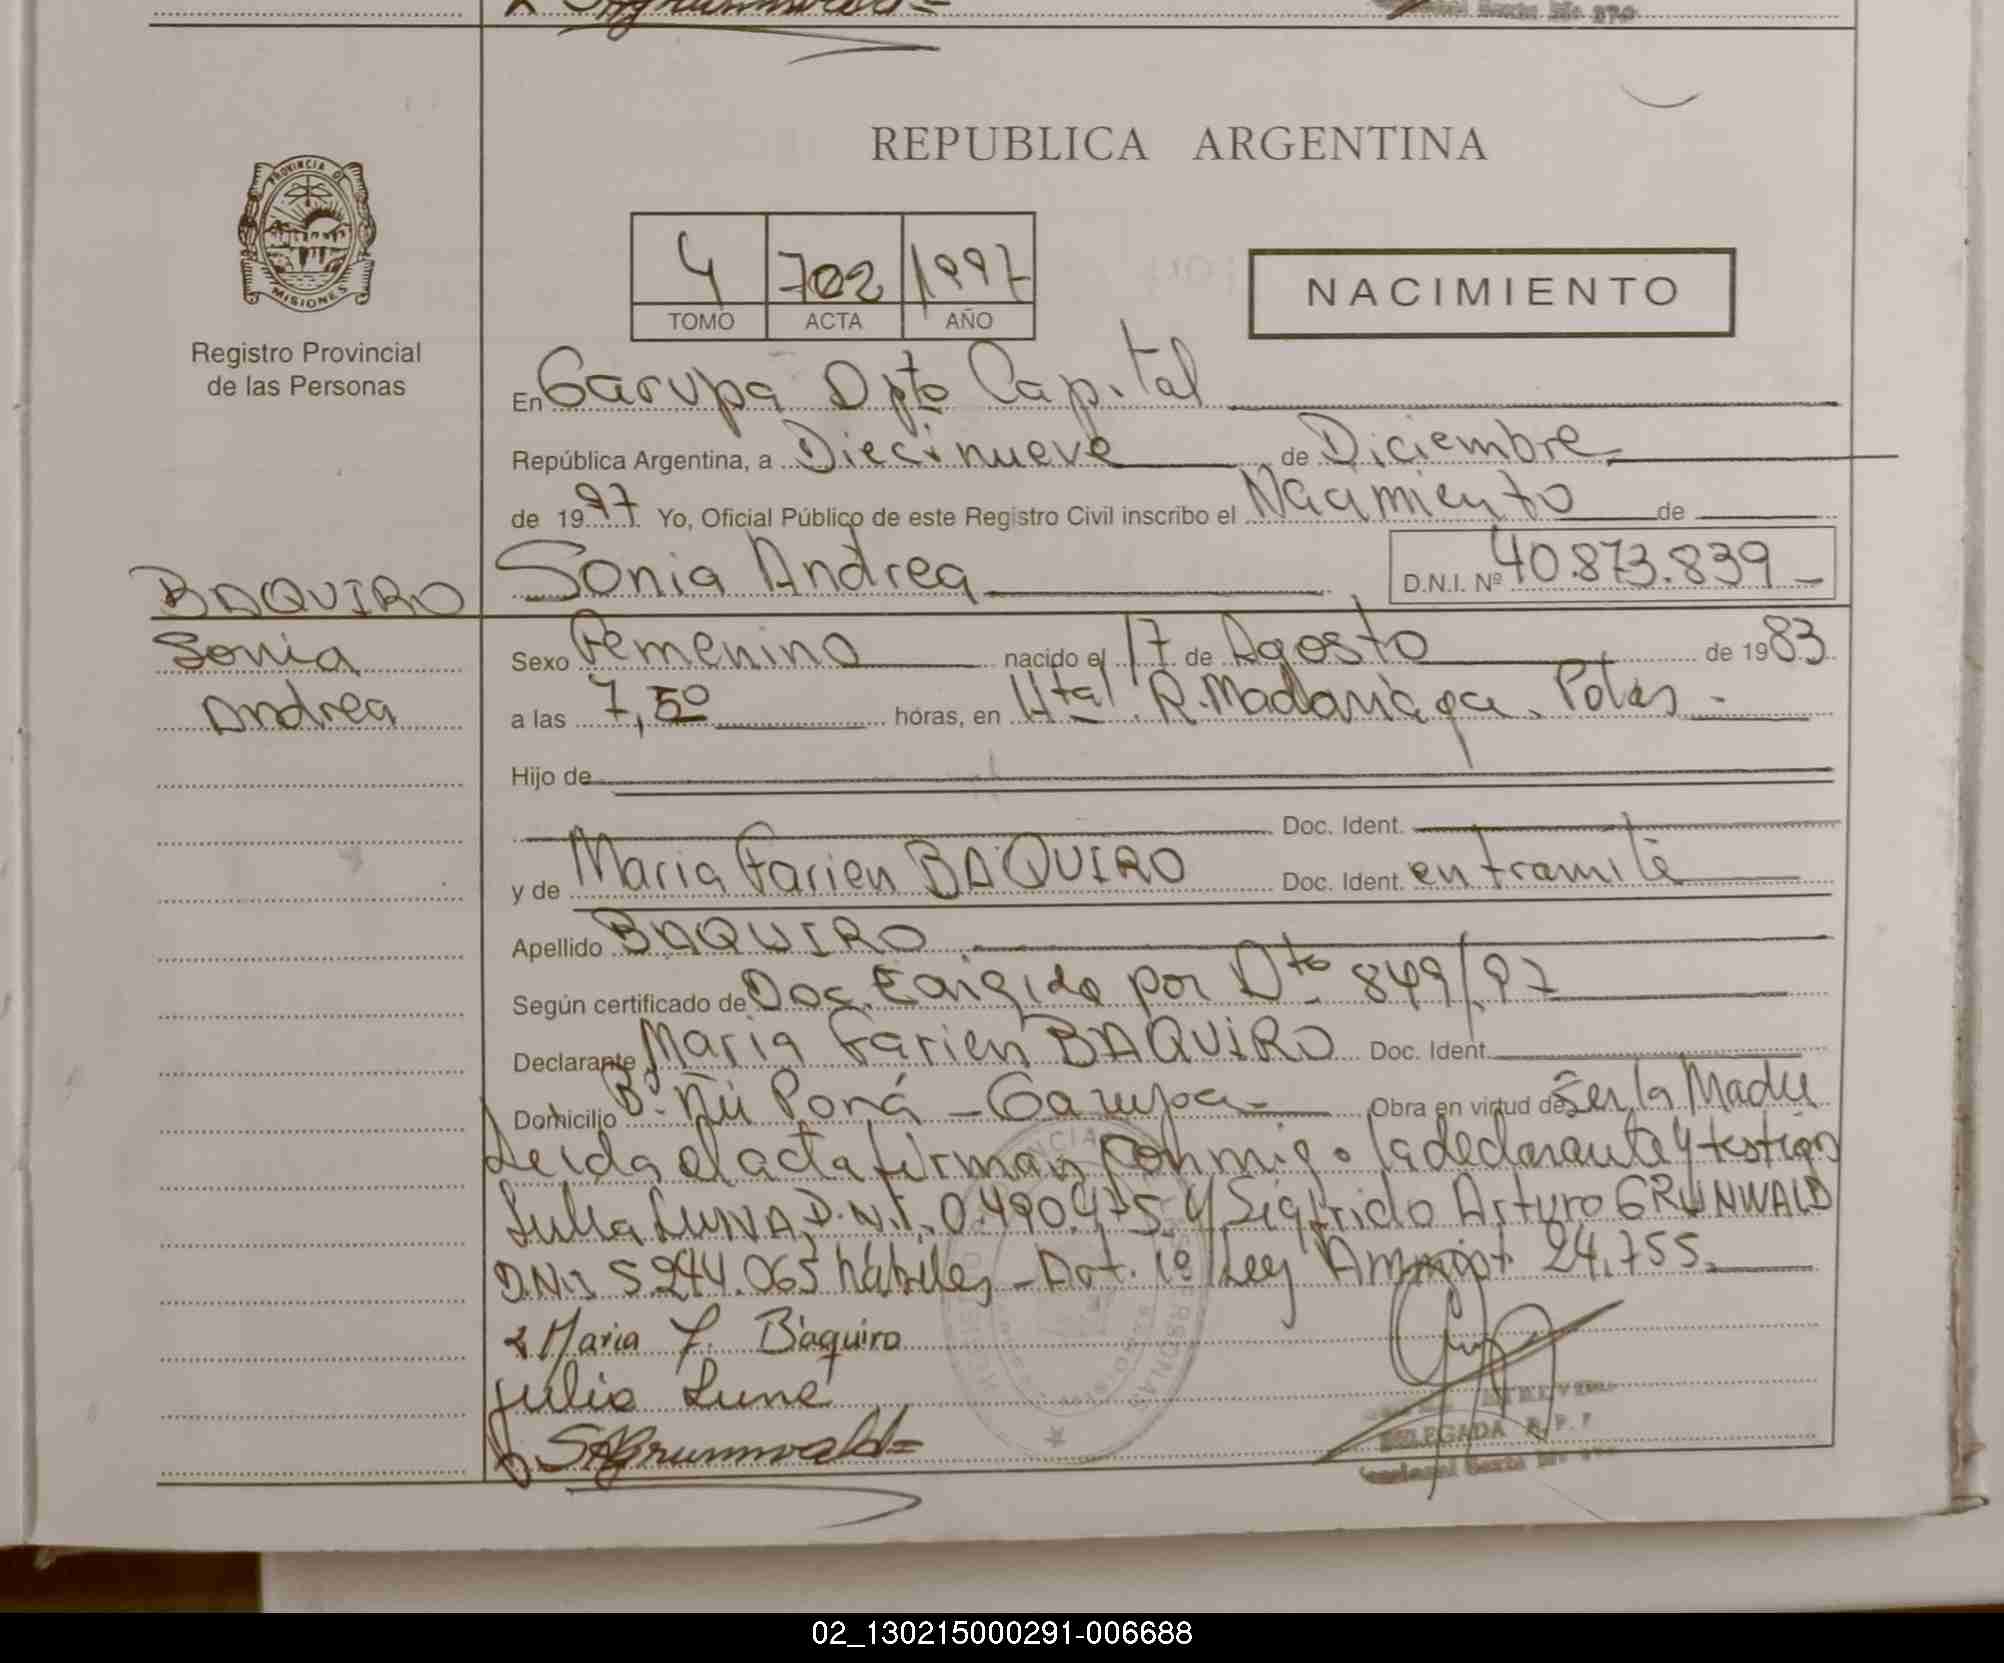 REPUBLICA ARGENTINA
PROVINCIA DE
MISIONES
Registro Provincial
de las Personas
4 702 1997
TOMO ACTA AÑO
NACIMIENTO
En Garupa Dpto Capital
República Argentina, a Diecinueve de Diciembre
de 1997. Yo, Oficial Público de este Registro Civil inscribo el Nacimiento de
Sonia Andrea D.N.I. Nº 40.873.839
BAQUIRO
Sonia
Andrea
Sexo Femenino nacido el 17 de Agosto de 1983
a las 7,50 horas, en Htal. R. Madariaga. Pdas.
Hijo de
Doc. Ident.
y de Maria Farien BAQUIRO Doc. Ident. en tramite
Apellido BAQUIRO
Según certificado de Doc. Exigida por Dto 849/97
Declarante Maria Farien BAQUIRO Doc. Ident.
Domicilio Bº Ñu Porá - Garupa - Obra en virtud de Ser la Madre
Leida el acta firman conmigo la declarante y testigos
LUNA D.N.I. 0.490.475 y Sigfrido Arturo GRUNWALD
D.N.I 5.244.065 hábiles - Art. 1º Ley 24.755.
Maria F. Baquiro
Julio Lune
SAGrunwald
DELEGADA R. P. P
02_130215000291-006688